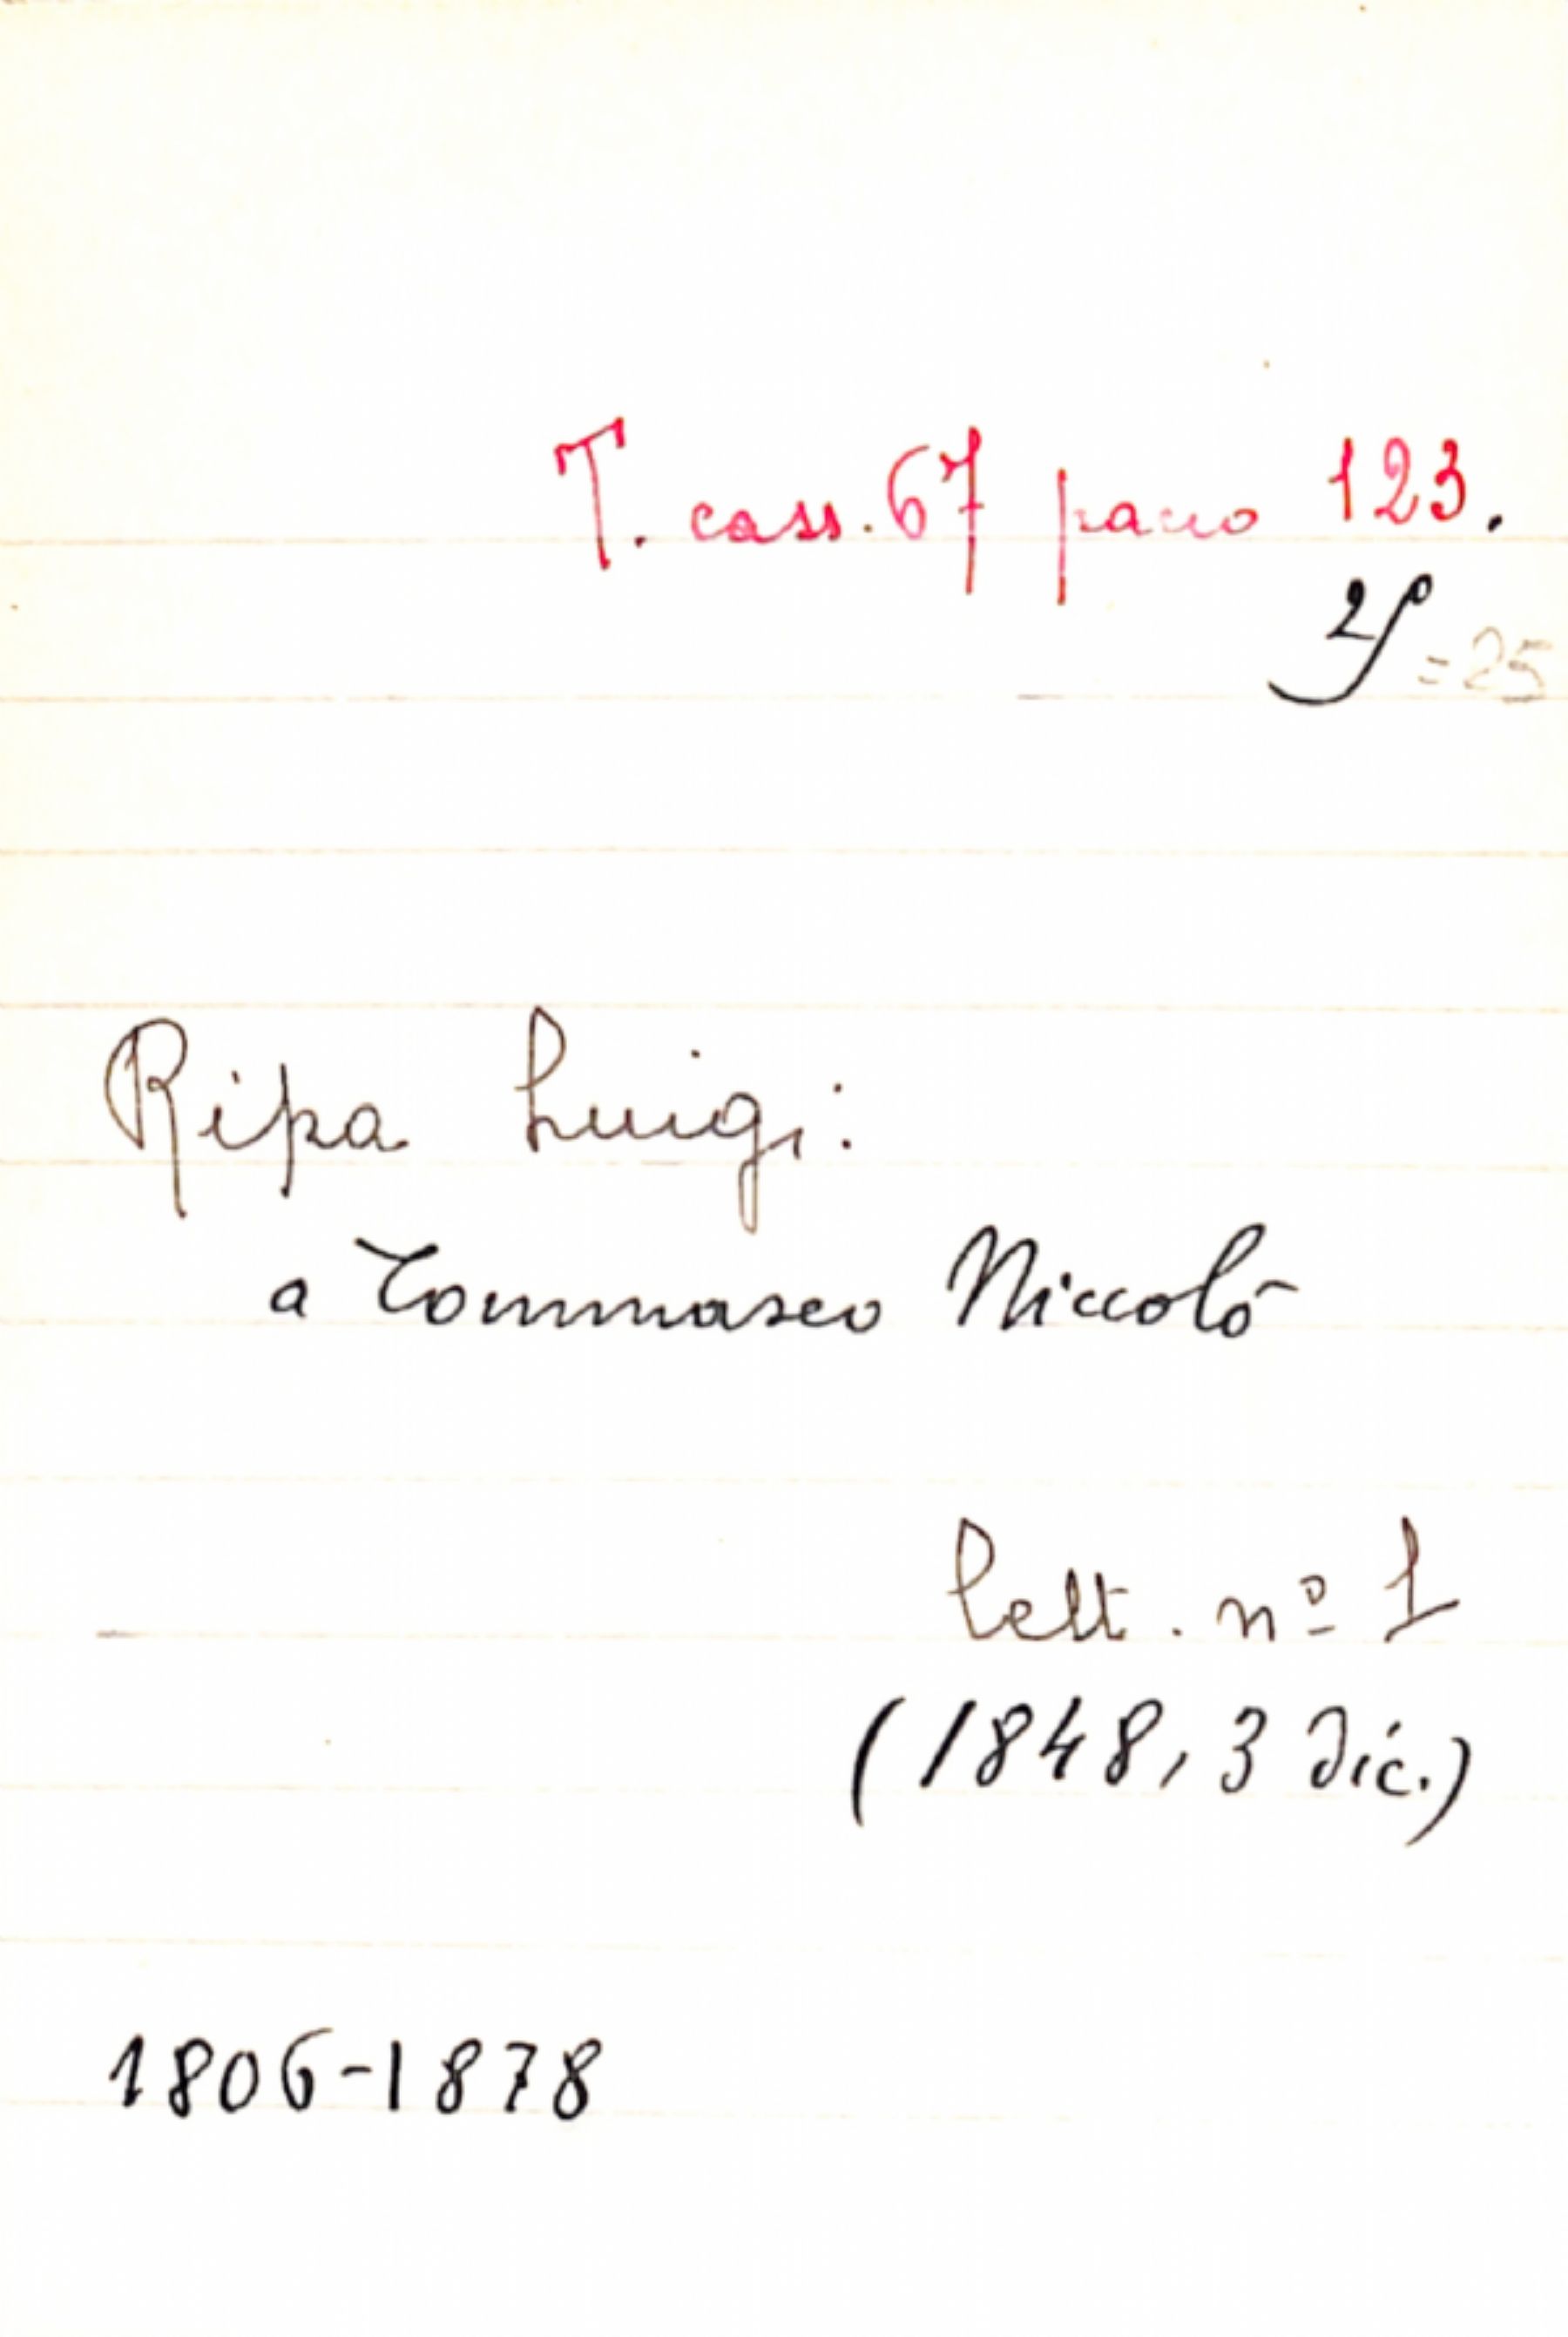 T. cass. 67 pacco 123.
= 25
Ripa Luigi:
a Tommaseo Niccolò
lett. nº 1
(1848, 3 dic.)
1806-1878